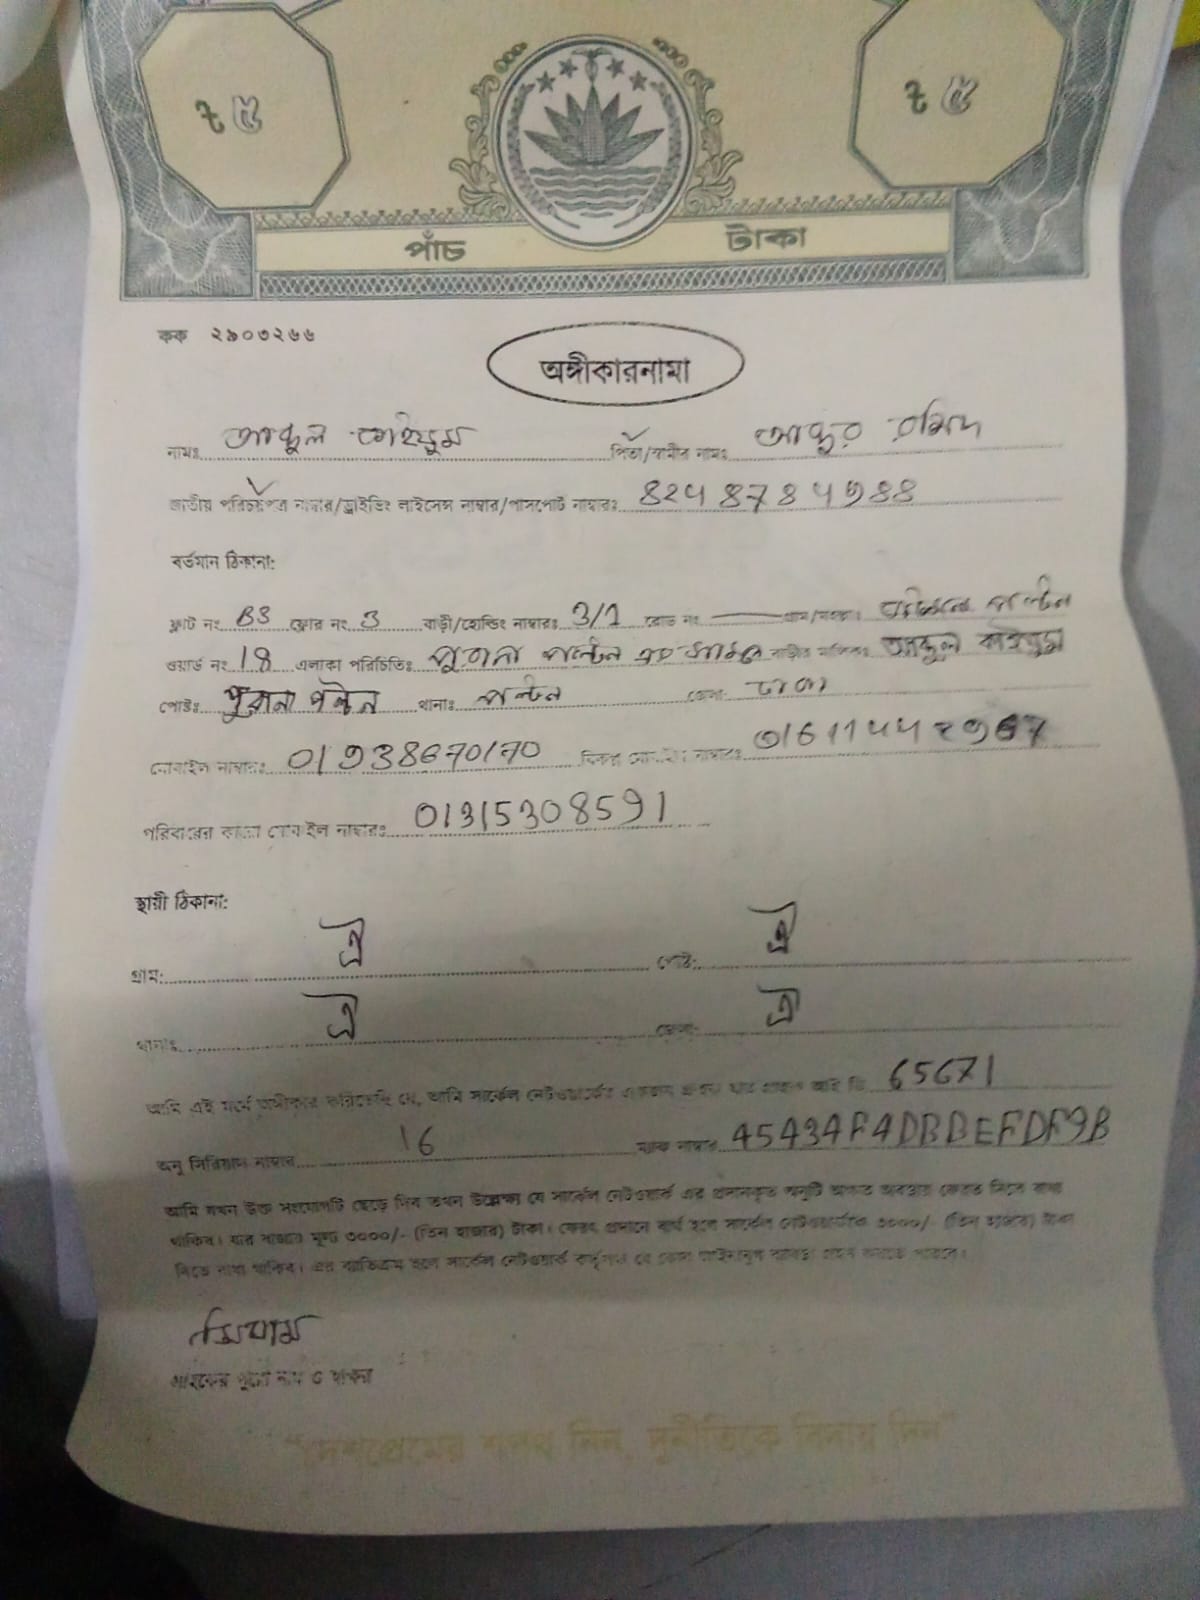 ৳ ৫
৳ ৫
পাঁচ টাকা
কক ২৯০৩২৬৬
অঙ্গীকারনামা
নামঃ আব্দুল কাইয়ুম পিতা/স্বামীর নামঃ আব্দুর রশিদ
জাতীয় পরিচয়পত্র নাম্বার/ড্রাইভিং লাইসেন্স নাম্বার/পাসপোর্ট নাম্বারঃ
বর্তমান ঠিকানা:
ফ্লাট নং B3 ফ্লোর নং 3 বাড়ী/হোল্ডিং নাম্বারঃ 3/1 রোড নং গ্রাম/মহল্লাঃ পল্টন
ওয়ার্ড নং 18 এলাকা পরিচিতিঃ পুরানা পল্টন বাড়ীর মালিকঃ আব্দুল কাইয়ুম
পোষ্টঃ পুরানা পল্টন থানাঃ পল্টন জেলা ঢাকা
মোবাইল নাম্বারঃ 01938670170 বিকল্প মোবাইল নাম্বারঃ
পরিবারের কারো মোবাইল নাম্বারঃ 01315308591
স্থায়ী ঠিকানা:
গ্রাম: ঐ পোষ্ট: ঐ
থানাঃ ঐ জেলা: ঐ
আমি এই মর্মে অঙ্গীকার করিতেছি যে, আমি সার্কেল নেটওয়ার্কের একজন গ্রাহক যার গ্রাহক আই ডি 65671
অনু সিরিয়াল নাম্বার 16 ম্যাক নাম্বার
আমি যখন উক্ত সংযোগটি ছেড়ে দিব তখন উল্লেক্ষ্য যে সার্কেল নেটওয়ার্ক এর প্রদানকৃত অনুটি অক্ষত অবস্থায় ফেরত দিতে বাধ্য
থাকিব। যার বাজার মূল্য ৩০০০/- (তিন হাজার) টাকা। ফেরৎ প্রদানে ব্যর্থ হলে সার্কেল নেটওয়ার্ককে ৩০০০/- (তিন হাজার) টাকা
দিতে বাধ্য থাকিব। এর ব্যতিক্রম হলে সার্কেল নেটওয়ার্ক কর্তৃপক্ষ যে কোন আইনানুগ ব্যবস্থা গ্রহন করতে পারবে।
গ্রাহকের পুরো নাম ও স্বাক্ষর
“দেশপ্রেমের শপথ নিন, দুর্নীতিকে বিদায় দিন”